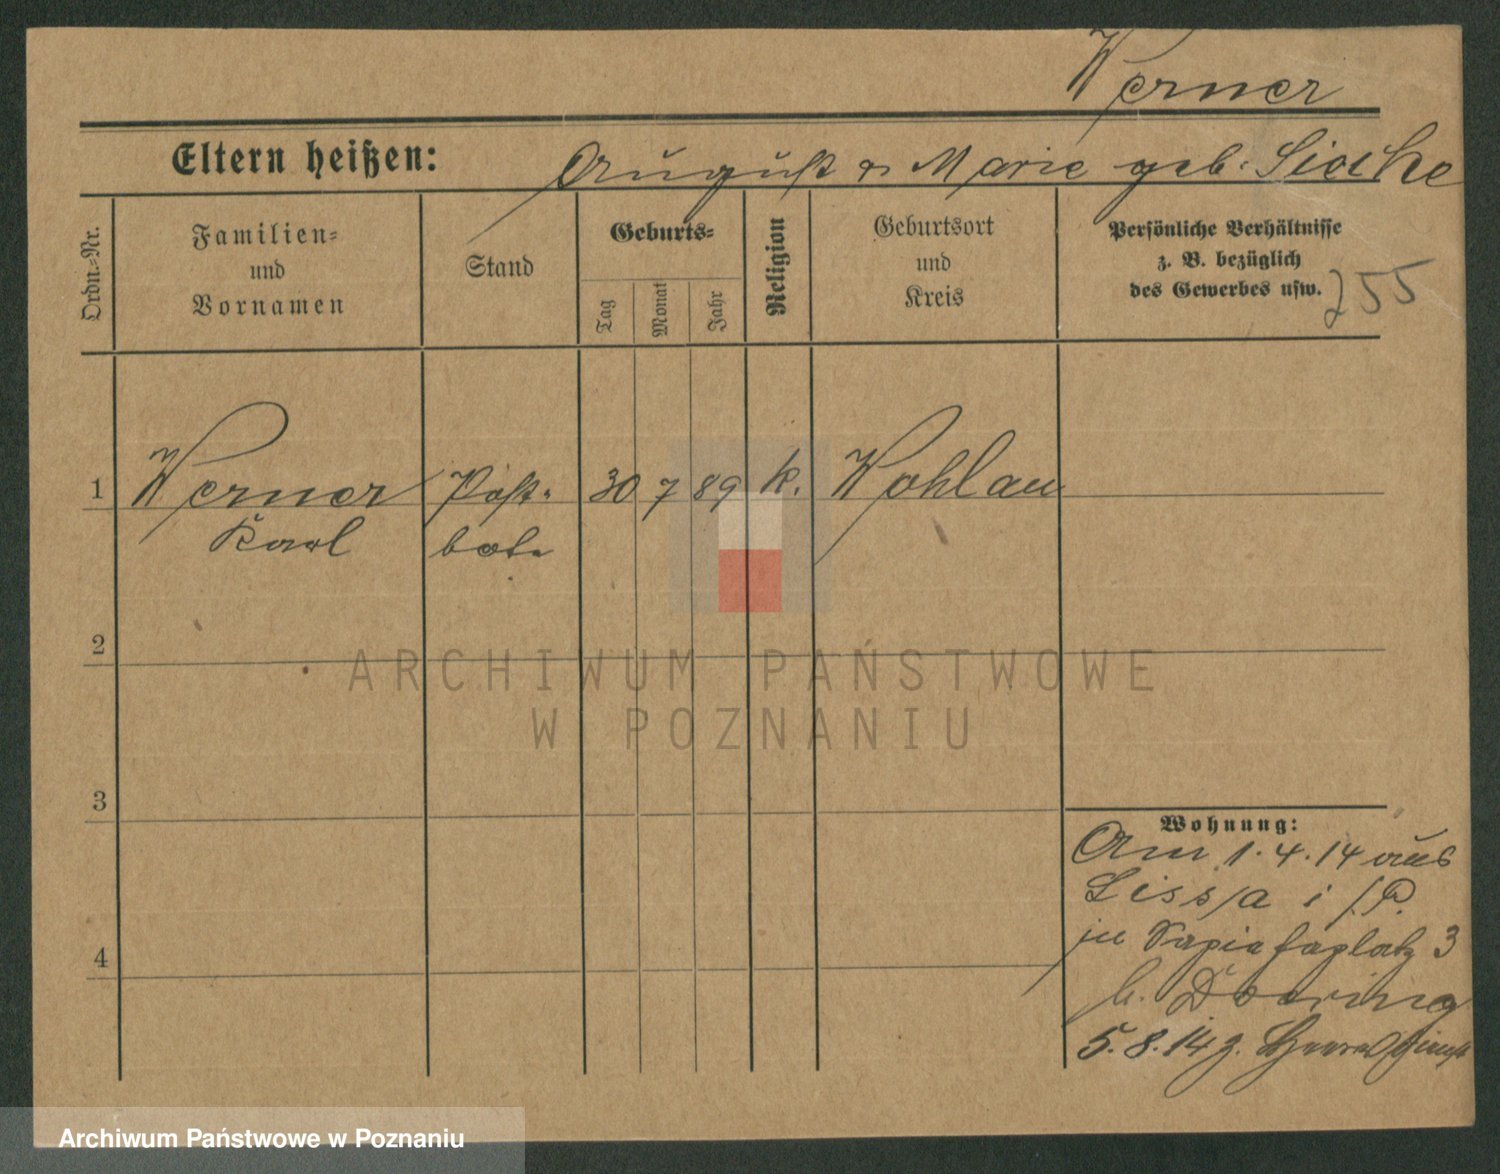 Werner
Eltern heißen: August u. Marie geb.
Ordn.=Nr.
Familien=
und
Vornamen
Stand
Geburts=
Tag
Monat
Jahr
Religion
Geburtsort
und
Kreis
Persönliche Verhältnisse
z. B. bezüglich
des Gewerbes usw.
255
1 Werner Post- 30 7 89 k. Wohlau
Karl bote
2
3
4
Wohnung:
Am 1.4.14 aus
Lissa i /P.
in Sapiehaplatz 3
b. Doering
5.8.14 z. Heeresdienst
ARCHIWUM PAŃSTWOWE
W POZNANIU
Archiwum Państwowe w Poznaniu